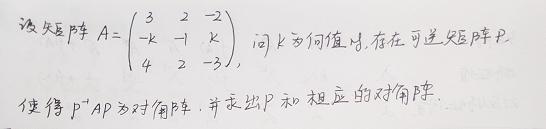 设矩阵 A = ( 3 2 -2
-k -1 k
4 2 -3 ), 问 k 为何值时, 存在可逆矩阵 P,
使得 P⁻¹AP 为对角阵, 并求出 P 和相应的对角阵.